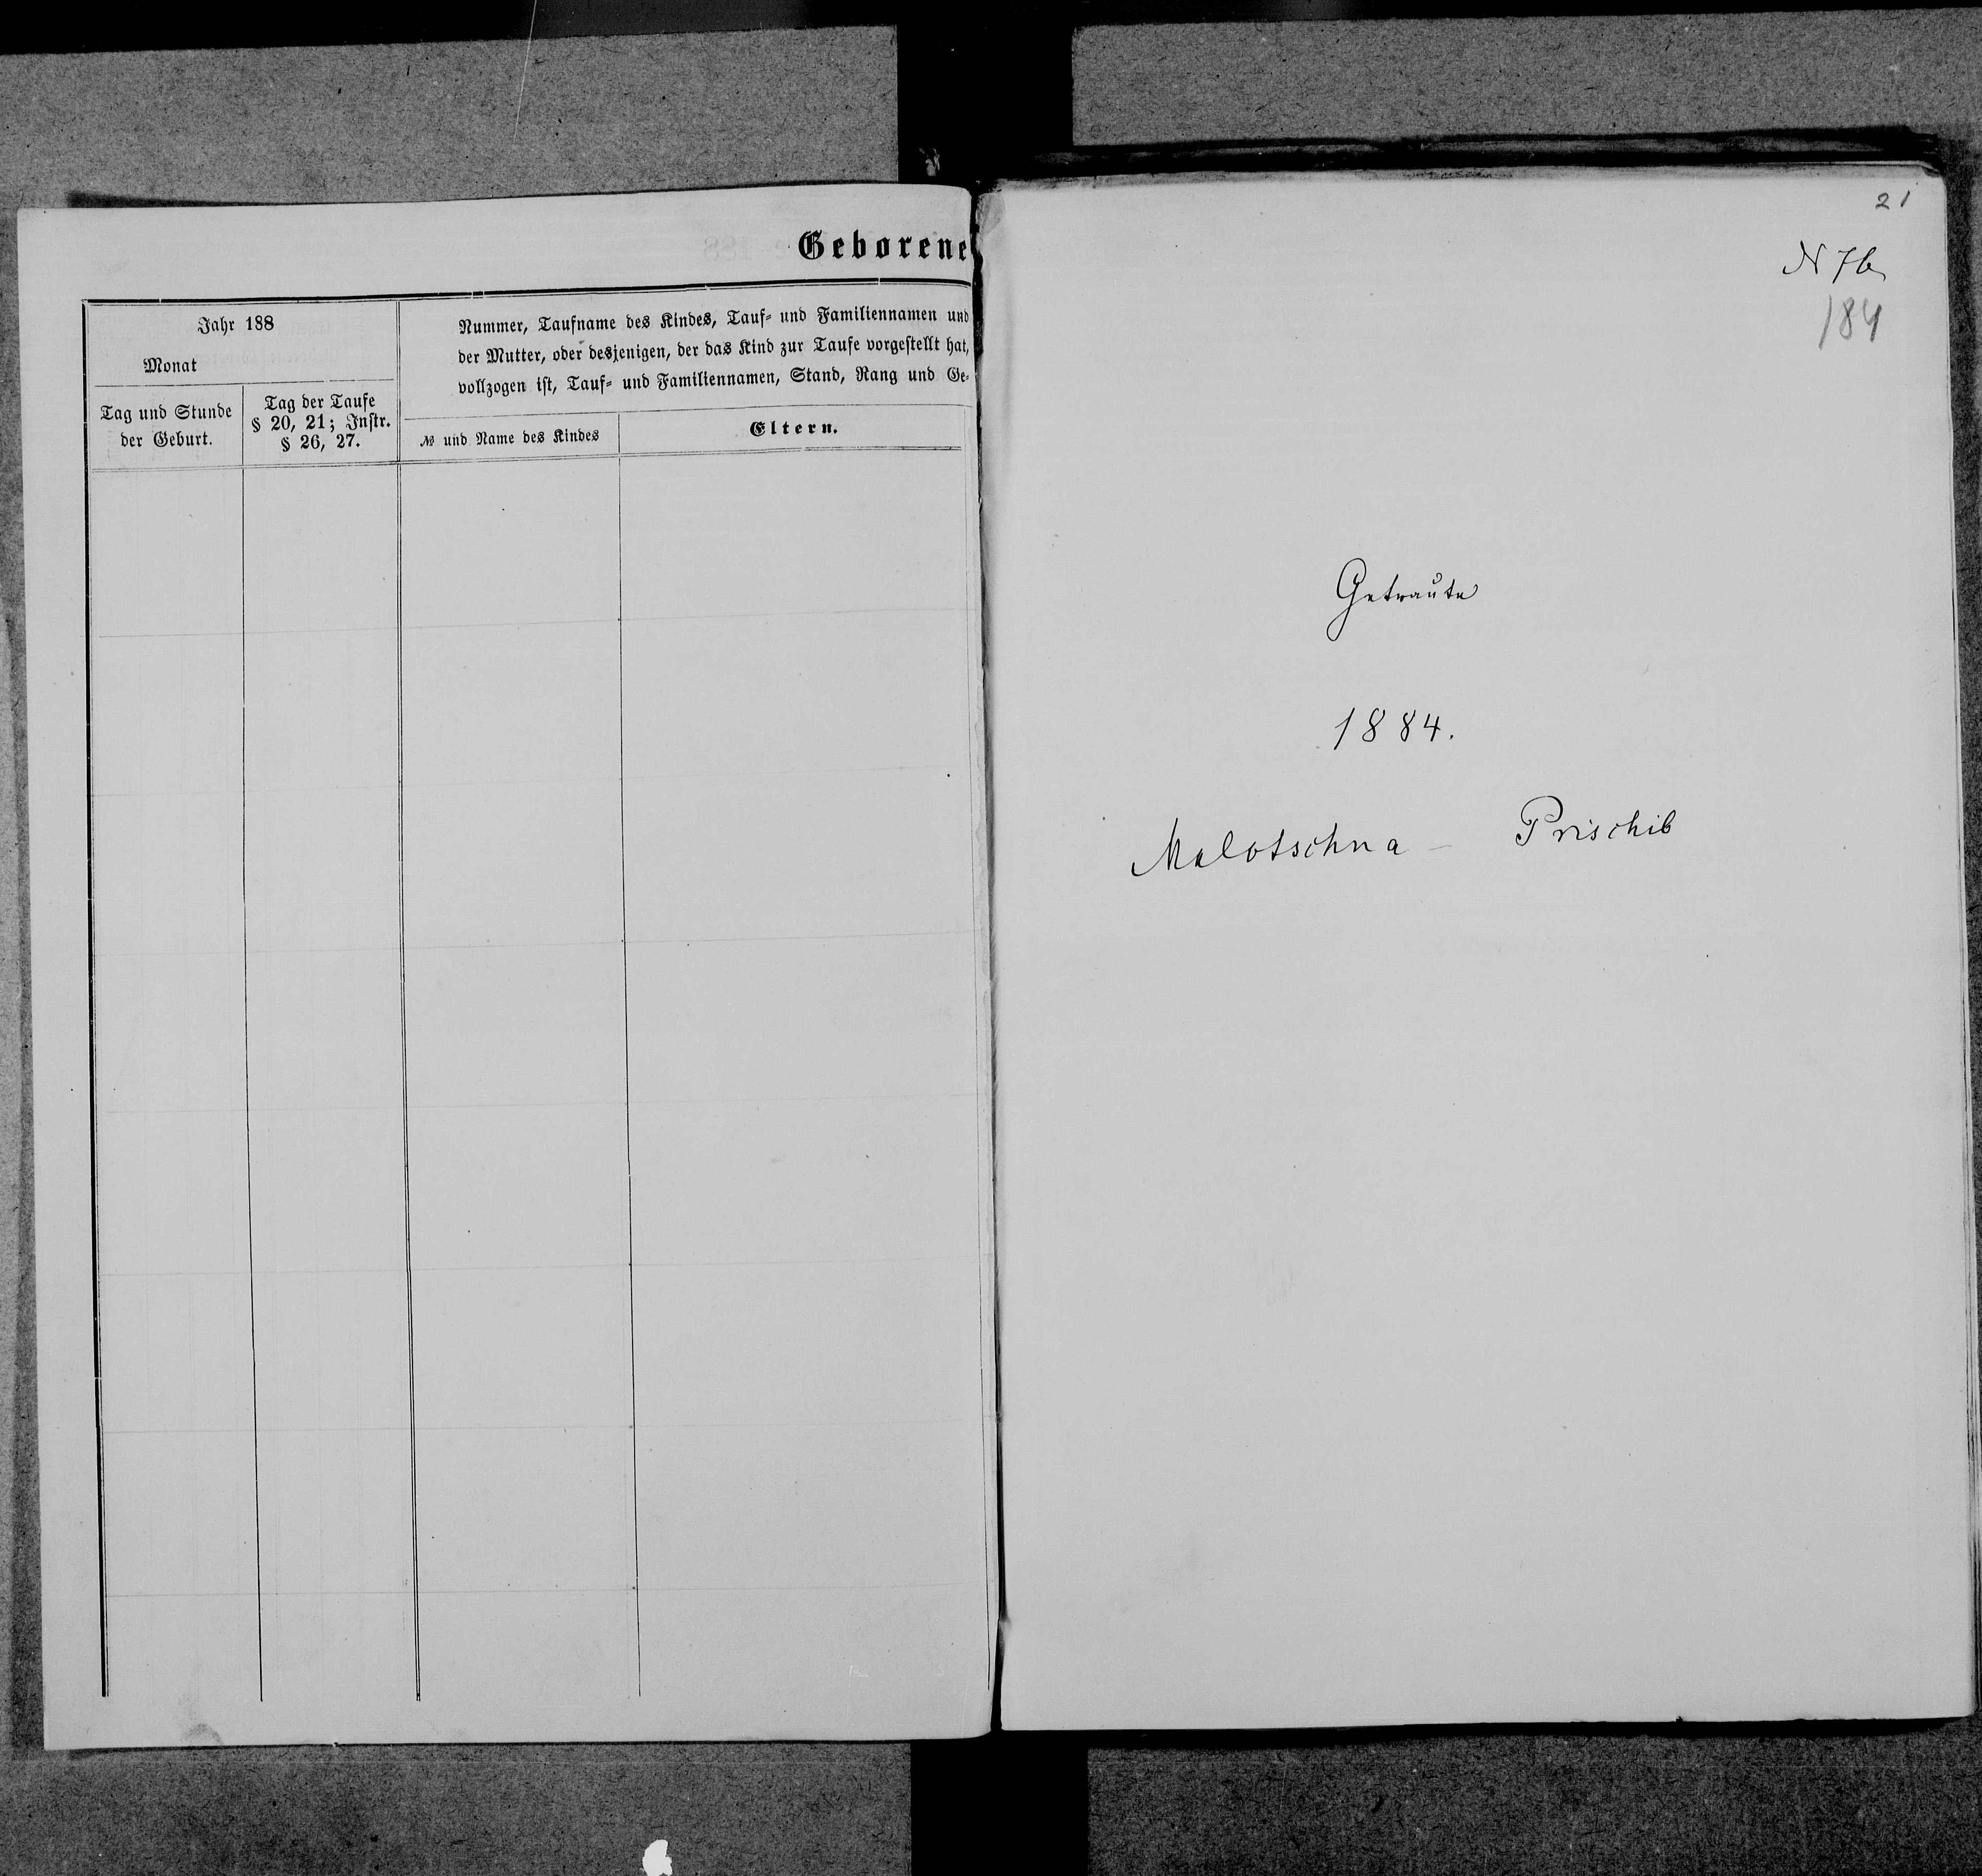 Geborene
Jahr 188
Monat
Tag und Stunde
der Geburt.
Tag der Taufe
§ 20, 21; Instr.
§ 26, 27.
Nummer, Taufname des Kindes, Tauf- und Familiennamen und
der Mutter, oder desjenigen, der das Kind zur Taufe vorgestellt hat,
vollzogen ist, Tauf- und Familiennamen, Stand, Rang und Ge-
№ und Name des Kindes
Eltern.
21
N 7b
184
Getraute
1884.
Molotschna – Prischib